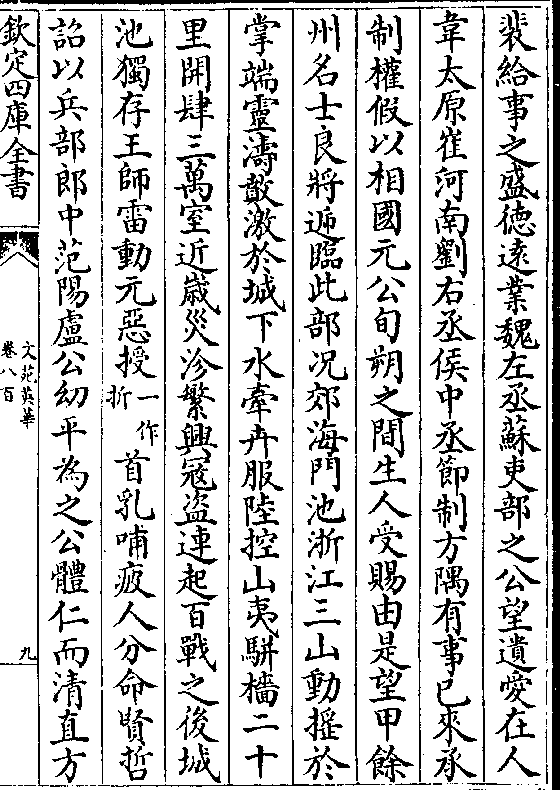 裴給事之盛德遠業魏左丞蘇吏部之公望遺愛在人
韋太原崔河南劉右丞侯中丞節制方隅有事已來承
制權假以相國元公旬朔之間生人受賜由是望甲餘
州名士良將遞臨此部况郊海門池浙江三山動揺於
掌端靈濤歕激於城下水牽卉服陸控山夷駢檣二十
里開肆三萬室近歳災沴繁興冦盜連起百戰之後城
池獨存王師雷動元惡授一作折首乳哺疲人分命賢哲
詔以兵部郎中范陽盧公幼平為之公體仁而清直方
欽定四庫全書
文苑英華
卷八百
九